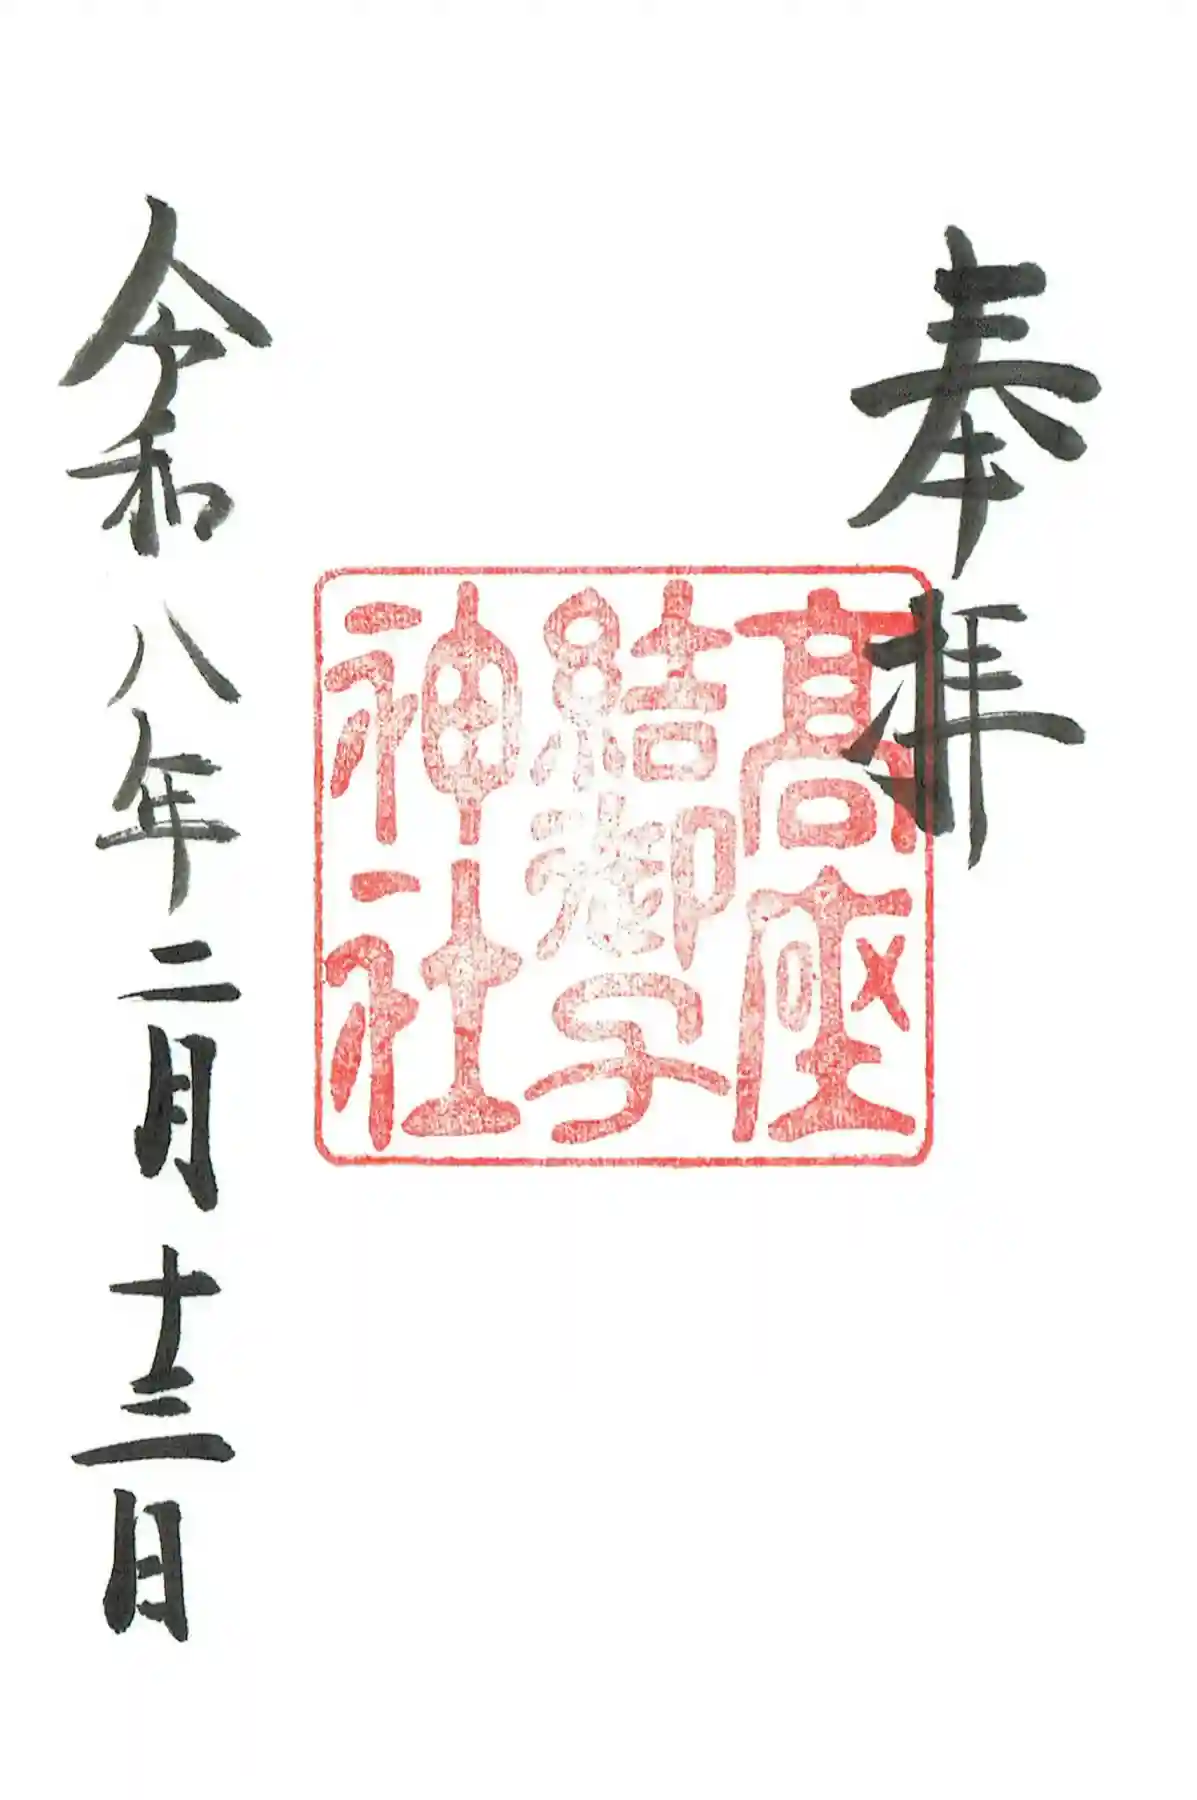 奉拝
髙座
結御子
神社
令和八年二月十三日